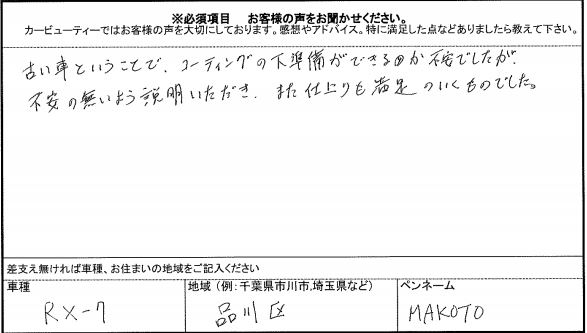 ※必須項目　お客様の声をお聞かせください。
カービューティーではお客様の声を大切にしております。感想やアドバイス。特に満足した点などありましたら教えて下さい。
古い車ということで、コーティングの下準備ができるのか不安でしたが、
不安の無いよう説明いただき、また仕上りも満足のいくものでした。
差支え無ければ車種、お住まいの地域をご記入ください
車種　地域（例:千葉県市川市,埼玉県など）　ペンネーム
RX-7　品川区　MAKOTO